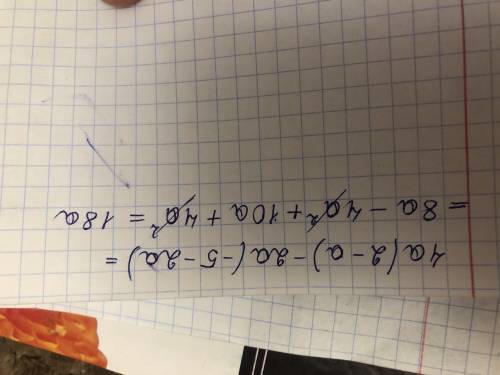 4a(2-a)-2a(-5-2a)=
=8a-4a²+10a+4a²=18a